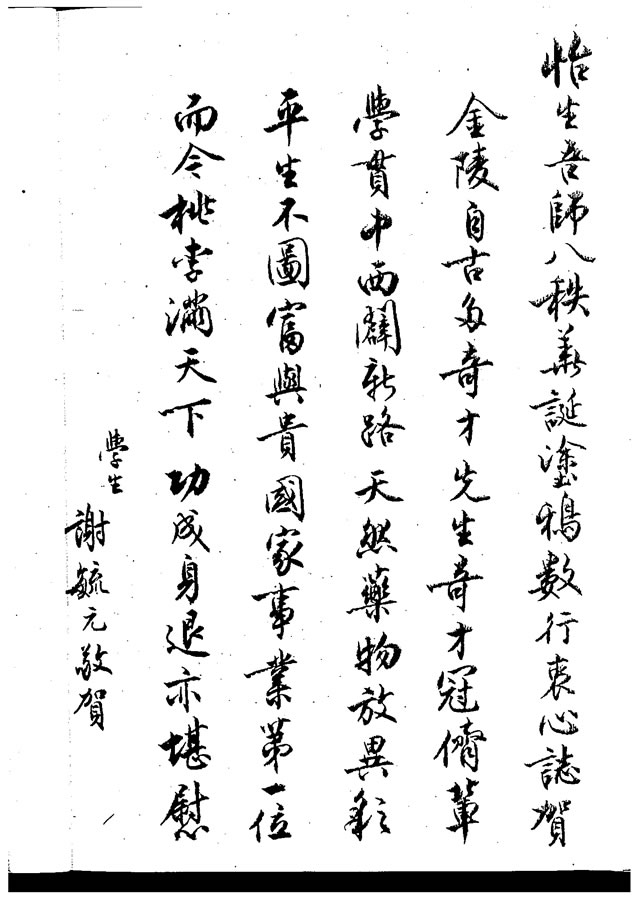 怡生吾師八秩華誕塗鴉數行衷心誌賀
金陵自古多奇才先生奇才冠儕輩
學貫中西闢新路天然藥物放異彩
平生不圖富與貴國家事業第一位
而今桃李滿天下功成身退亦堪慰
學生
謝毓元敬賀